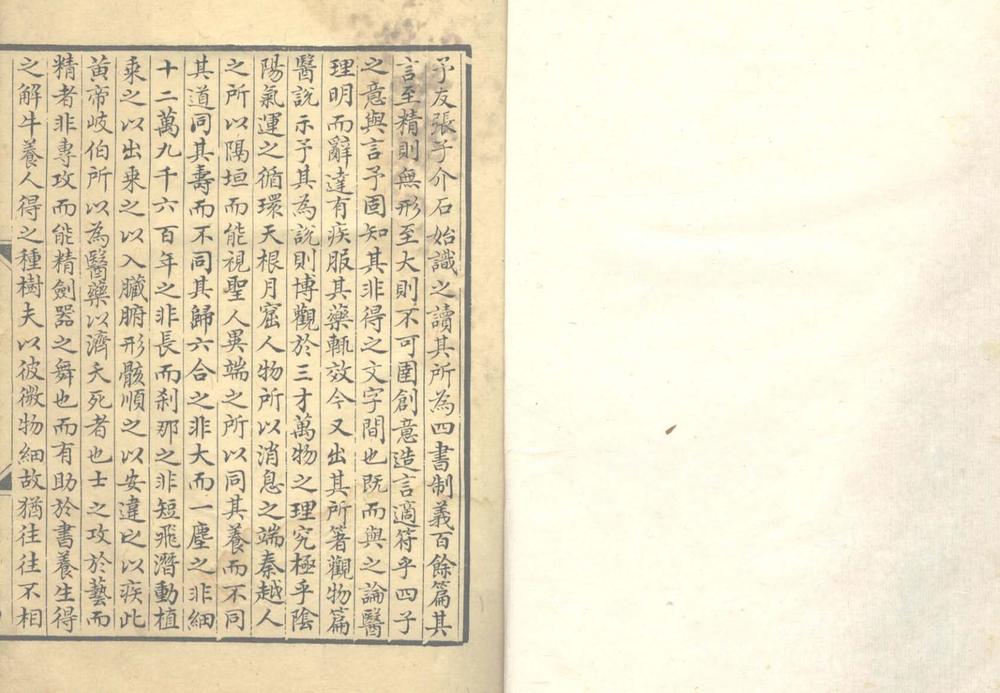 予友張子介石始識之讀其所為四書制義百餘篇其
言至精則無形至大則不可圉創意造言適符乎四子
之意與言予固知其非得之文字間也既而與之論醫
理明而辭達有疾服其藥輒效今又出其所著觀物篇
醫説示予其為説則博觀於三才萬物之理究極乎陰
陽氣運之循環天根月窟人物所以消息之端秦越人
之所以隔垣而能視聖人異端之所以同其養而不同
其道同其壽而不同其歸六合之非大而一塵之非細
十二萬九千六百年之非長而刹那之非短飛潛動植
乘之以出乘之以入臟腑形骸順之以安違之以疾此
黄帝岐伯所以為醫藥以濟夭死者也士之攻於藝而
精者非專攻而能精劍器之舞也而有助於書養生得
之解牛養人得之種樹夫以彼微物細故猶往往不相